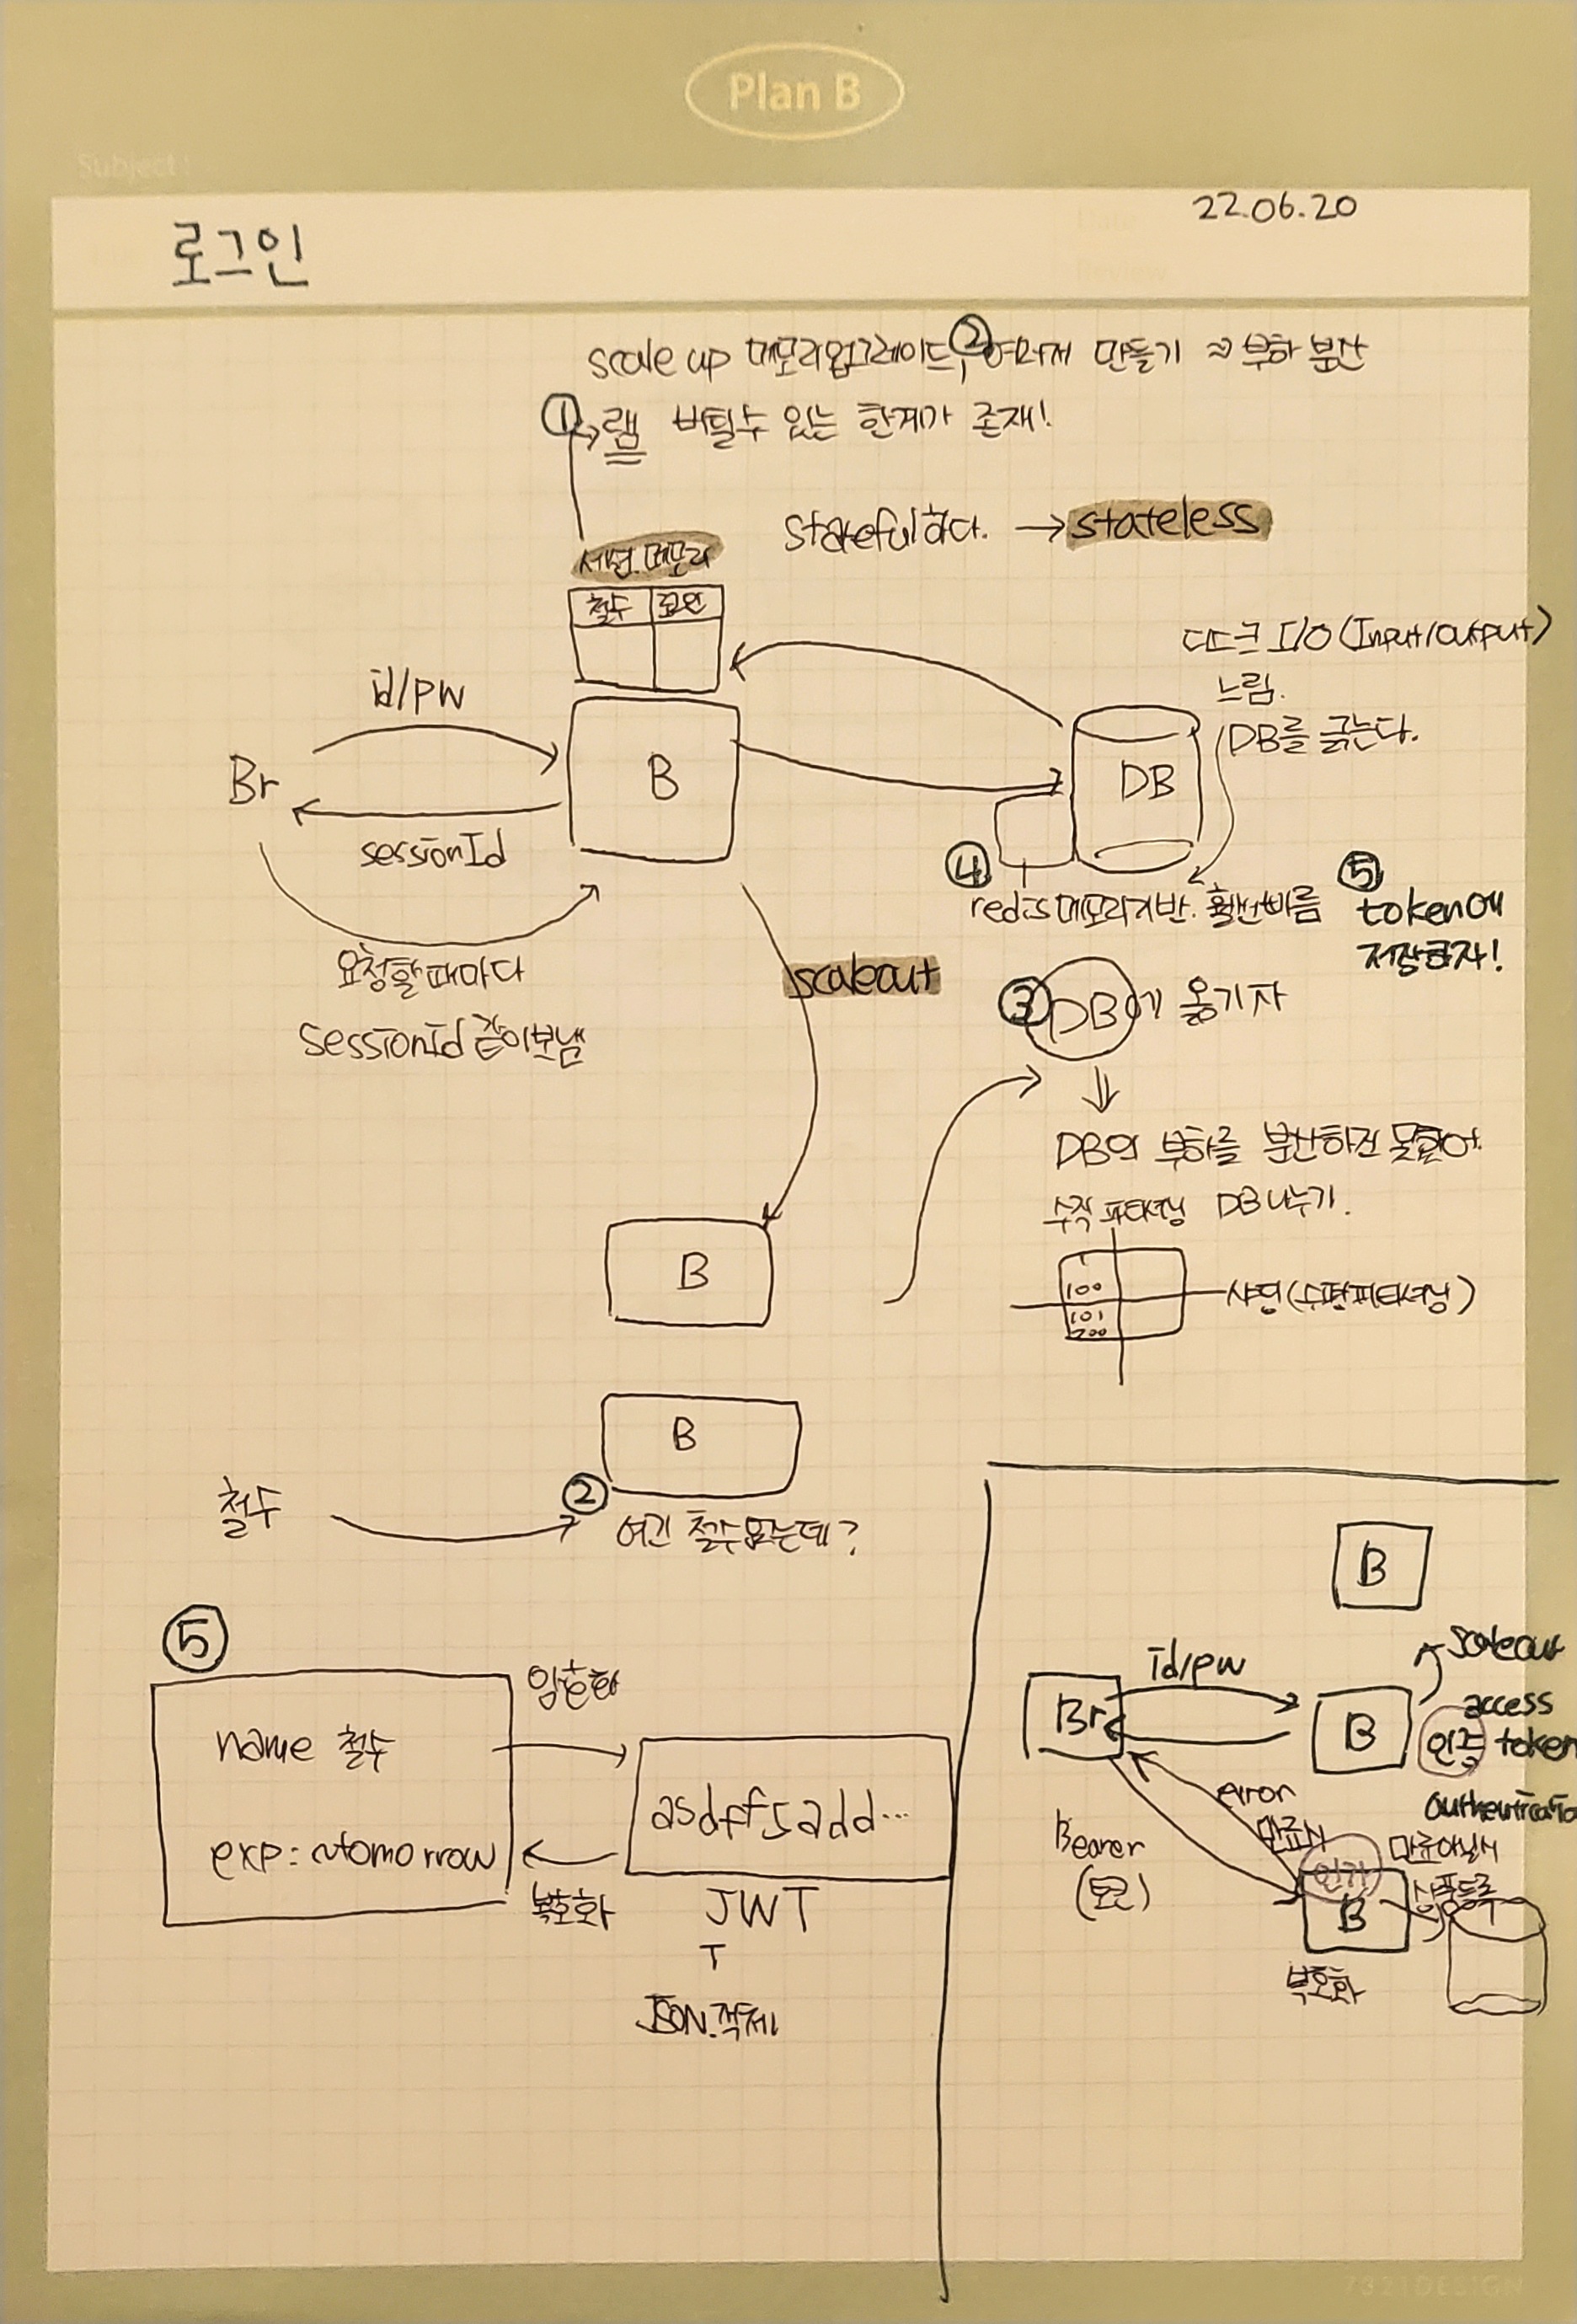 Plan B
Subject :
22.06.20
로그인
scale up 메모리업그레이드, ② 여러개 만들기 ⇒ 부하 분산
① → 램 버틸수 있는 한계가 존재!
stateful하다. → stateless
세션.메모리
철수
디스크 I/O (Input/Output)
느림.
DB를 긁는다.
id/pw
Br
B
DB
sessionId
④ redis 메모리기반. 훨씬빠름
⑤ token에
저장하자!
요청할때마다
SessionId 같이보냄
scaleout
③ DB에 옮기자
DB의 부하를 분산하진 못했어.
수직 파티셔닝 DB 나누기.
B
1
100
101
200
샤딩(수평파티셔닝)
B
철수
② 여긴 철수없는데?
⑤
암호화
name 철수
exp: ~tomorrow
asdff5add...
복호화
JWT
JSON.객체
B
scaleout
id/pw
Br
B
access
인증 token
authentication
error
만료시
Bearer
(토큰)
인가
만료아닐시
상품등록
B
복호화
7321DESIGN